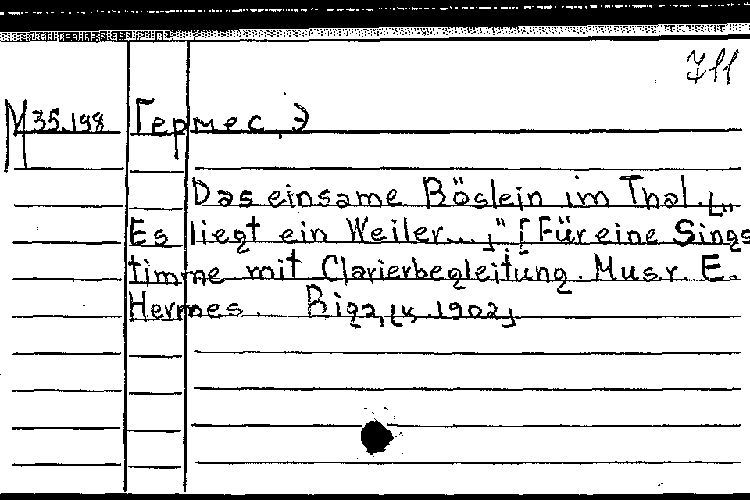 711
M 35.198 Гермес, Э
Das einsame Röslein im Thal. [„
Es liegt ein Weiler...“]. [Für eine Sings
timme mit Clavierbegleitung. Mus. v. E.
Hermes. Riga, [к. 1902]